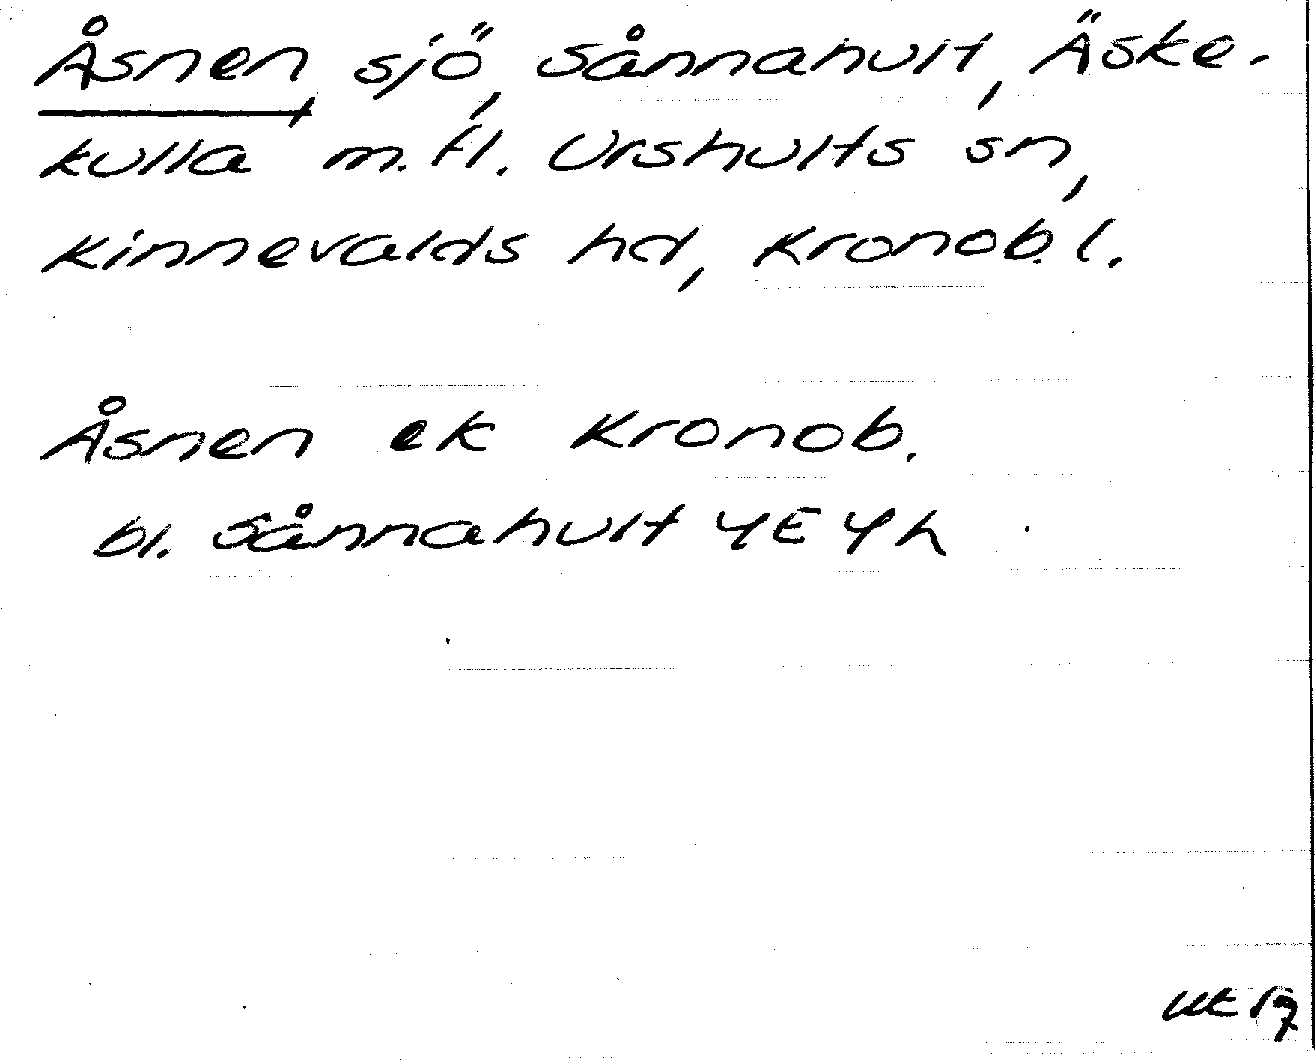 Åsnen, sjö, Sånnahult, Äske-
kulla m.fl. Urshults sn,
Kinnevalds hd, Kronob.l.
Åsnen ek Kronob.
bl. Sånnahult 4E4h